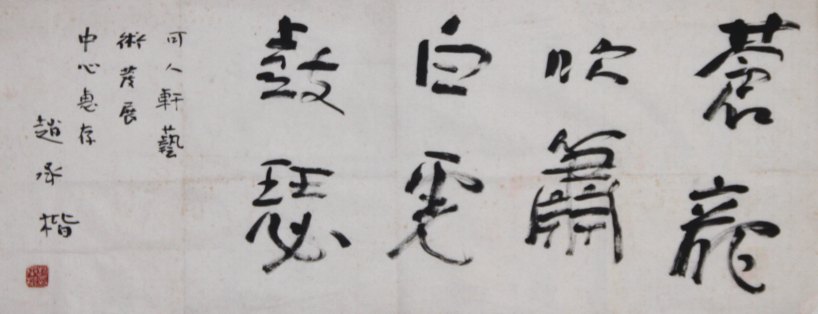 蒼龍
吹簫
白虎
鼓瑟
可人軒藝
術發展
中心惠存
趙承楷